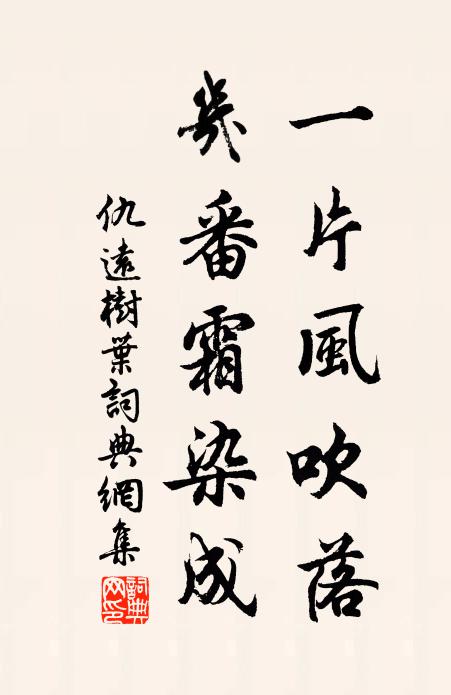 一片風吹落
幾番霜染成
仇遠樹葉詞典網集
詞典網印